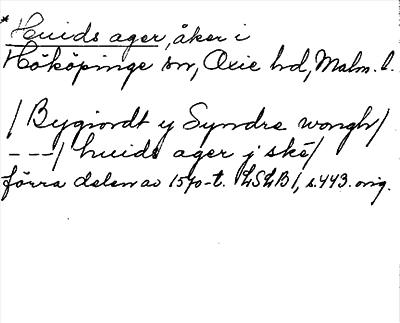 *Huids ager, åker i
Hököpinge sn, Oxie hd, Malm. l.
/ Bygiordt y Syndre wongh/
---/ huids ager j ské/
förra delen av 1570-t. LSLB 1, s. 443. orig.